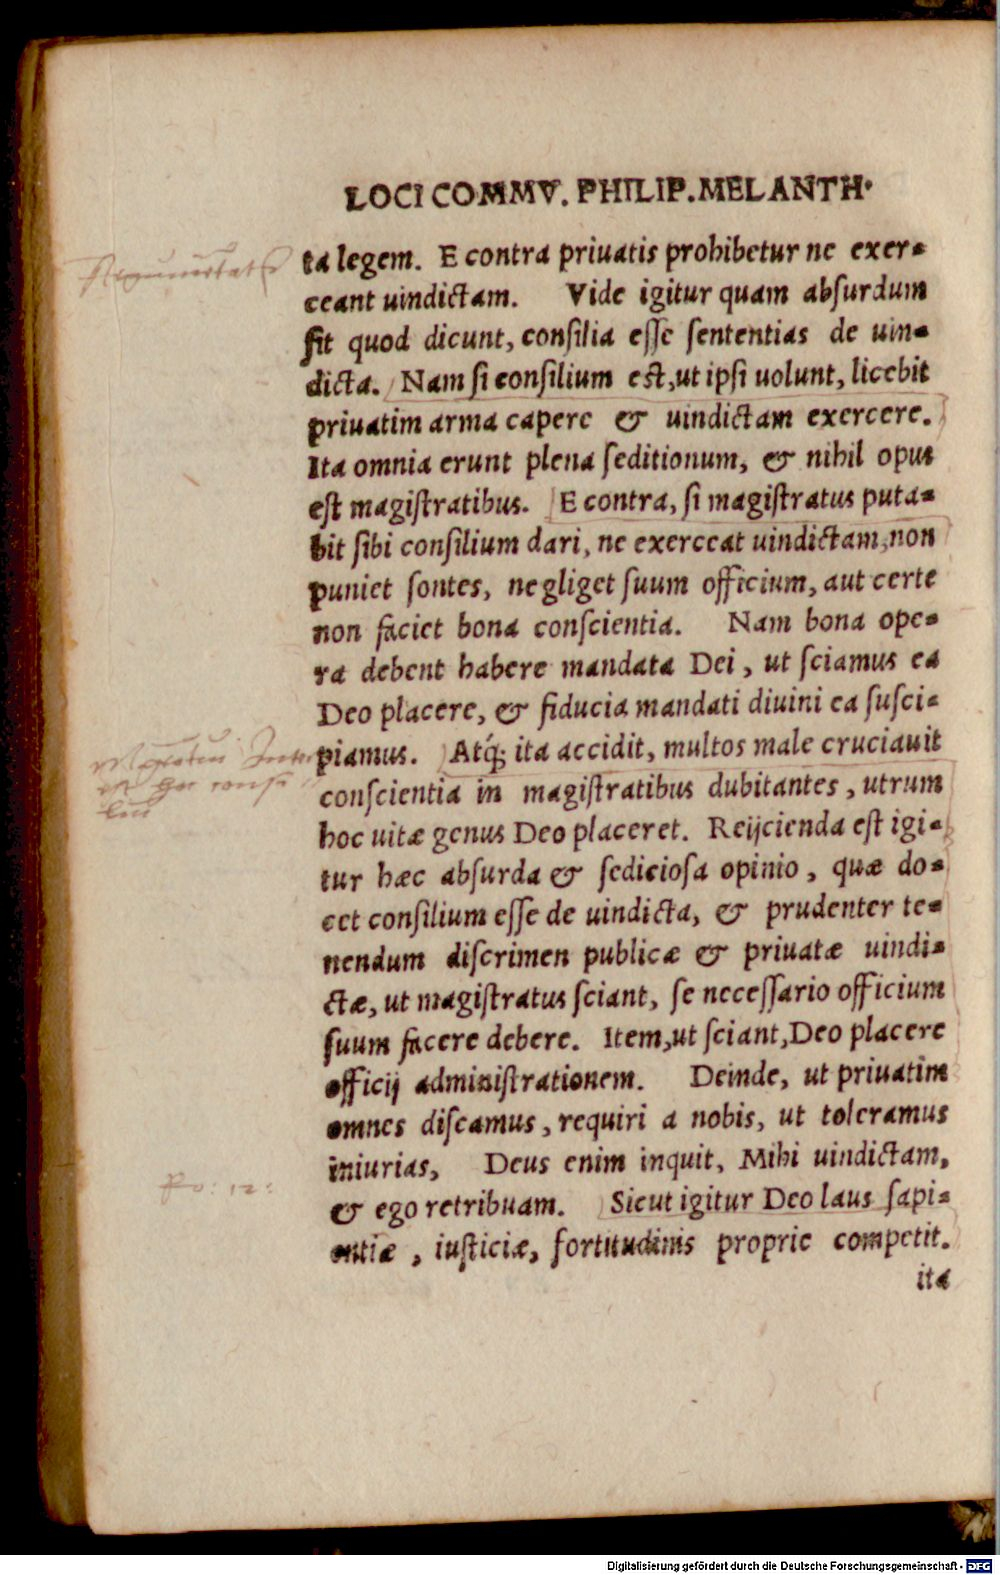 LOCI COMMV. PHILIP. MELANTH.
ta legem. E contra priuatis prohibetur ne exer⸗
ceant uindictam. Vide igitur quam abſurdum
ſit quod dicunt, conſilia eſſe ſententias de uin⸗
dicta. Nam ſi conſilium eſt, ut ipſi uolunt, licebit
priuatim arma capere & uindictam exercere.
Ita omnia erunt plena ſeditionum, & nihil opus
eſt magiſtratibus. E contra, ſi magiſtratus puta⸗
bit ſibi conſilium dari, ne exerceat uindictam, non
puniet ſontes, negliget ſuum officium, aut certe
non faciet bona conſcientia. Nam bona ope⸗
ra debent habere mandata Dei, ut ſciamus ea
Deo placere, & fiducia mandati diuini ea ſuſci⸗
piamus. Atq́; ita accidit, multos male cruciauit
conſcientia in magiſtratibus dubitantes, utrum
hoc uitæ genus Deo placeret. Reijcienda eſt igi⸗
tur hæc abſurda & ſedicioſa opinio, quæ do⸗
cet conſilium eſſe de uindicta, & prudenter te⸗
nendum diſcrimen publicæ & priuatæ uindi⸗
ctæ, ut magiſtratus ſciant, ſe neceſſario officium
ſuum facere debere. Item, ut ſciant, Deo placere
officij adminiſtrationem. Deinde, ut priuatim
omnes diſcamus, requiri a nobis, ut toleramus
iniurias, Deus enim inquit, Mihi uindictam,
& ego retribuam. Sicut igitur Deo laus ſapi⸗
entiæ, iuſticiæ, fortitudinis proprie competit.
ita
Ro: 12:
Digitalisierung gefördert durch die Deutsche Forschungsgemeinschaft - DFG